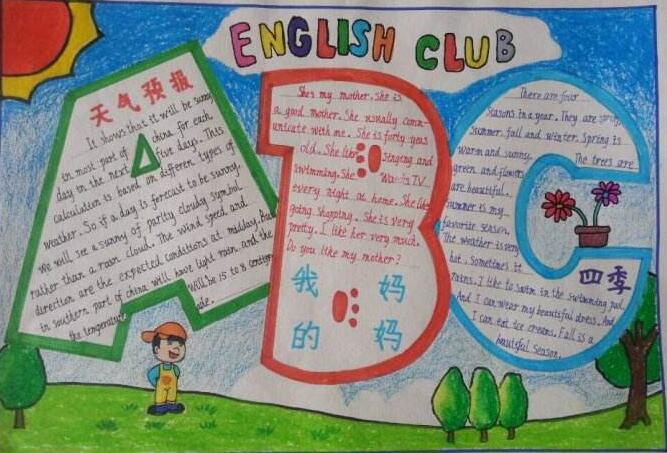 ENGLISH CLUB
天气预报
It shows that it will be sunny
in most part of china for each
day in the next five days. This
calculation is based on different types of
weather. So if a day is forecast to be sunny
we will see a sunny of partly cloudy symbol
rather than a rain cloud. The wind speed and
direction are the expected conditions at midday. But
in southern part of china will have light rain and the
the temperature will be 15 to 8 centigr
ade.
She's my mother. She is
a good mother. She usually comm-
unicate with me. She is forty yeas
old. She like singing and
swimming. She Watch TV
every night at home. She like
going shopping. She is very
pretty. I like her very much.
Do you like my mother?
我 妈
的 妈
There are four
seasons in a year. They are spring
summer. fall and winter. Spring is
warm and sunny. The trees are
green and flowers
are beautiful.
summer is my
favorite season.
The weather is very
hot. Sometimes it
rains. I like to swim in the swimming pool.
And I can wear my beautiful dress. And
I can eat ice creams. Fall is a
beautiful season.
四季